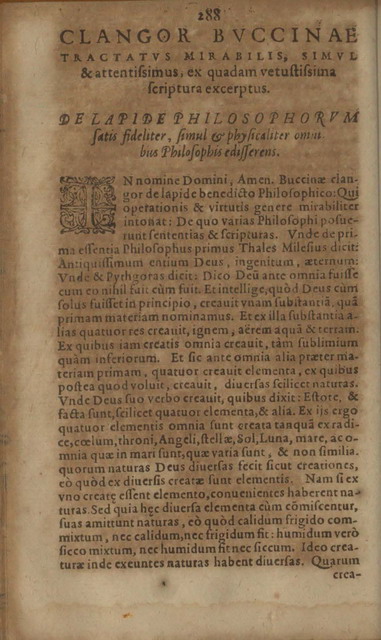 288
CLANGOR BVCCINAE
TRACTATVS MIRABILIS, SIMVL
& attentissimus, ex quadam vetustissima
scriptura excerptus.
DE LAPIDE PHILOSOPHORVM
satis fideliter, simul & physicaliter omni
bus Philosophis edisserens.
IN nomine Domini, Amen. Buccinæ clan-
gor de lapide benedicto Philosophico: Qui
operationis & virtutis genere mirabiliter
intonat: De quo varias Philosophi posue-
runt sententias & scripturas. Vnde de pri-
ma essentia Philosophus primus Thales Milesius dicit:
Antiquissimum entium Deus, ingenitum, æternum:
Vnde & Pythgoras dicit: Dico Deũ ante omnia fuisse
cum eo nihil fuit cùm fuit. Et intellige, quòd Deus cùm
solus fuisset in principio, creauit vnam substantiã, quã
primam materiam nominamus. Et ex illa substantia a-
lias quatuor res creauit, ignem, aërem aquã & terram:
Ex quibus iam creatis omnia creauit, tàm sublimium
quàm inferiorum. Et sic ante omnia alia præter ma-
teriam primam, quatuor creauit elementa, ex quibus
postea quod voluit, creauit, diuersas scilicet naturas.
Vnde Deus suo verbo creauit, quibus dixit: Estote, &
facta sunt, scilicet quatuor elementa, & alia. Ex iis ergo
quatuor elementis omnia sunt creata tanquã ex radi-
ce, cœlum, throni, Angeli, stellæ, Sol, Luna, mare, ac o-
mnia quæ in mari sunt, quæ varia sunt, & non similia.
quorum naturas Deus diuersas fecit sicut creationes,
eò quòd ex diuersis creatæ sunt elementis. Nam si ex
vno creatę essent elemento, conuenientes haberent na-
turas. Sed quia hęc diuersa elementa cùm cõmiscentur,
suas amittunt naturas, eò quòd calidum frigido com-
mixtum, nec calidum, nec frigidum fit: humidum verò
sicco mixtum, nec humidum fit nec siccum. Ideo crea-
turæ inde exeuntes naturas habent diuersas. Quarum
crea-